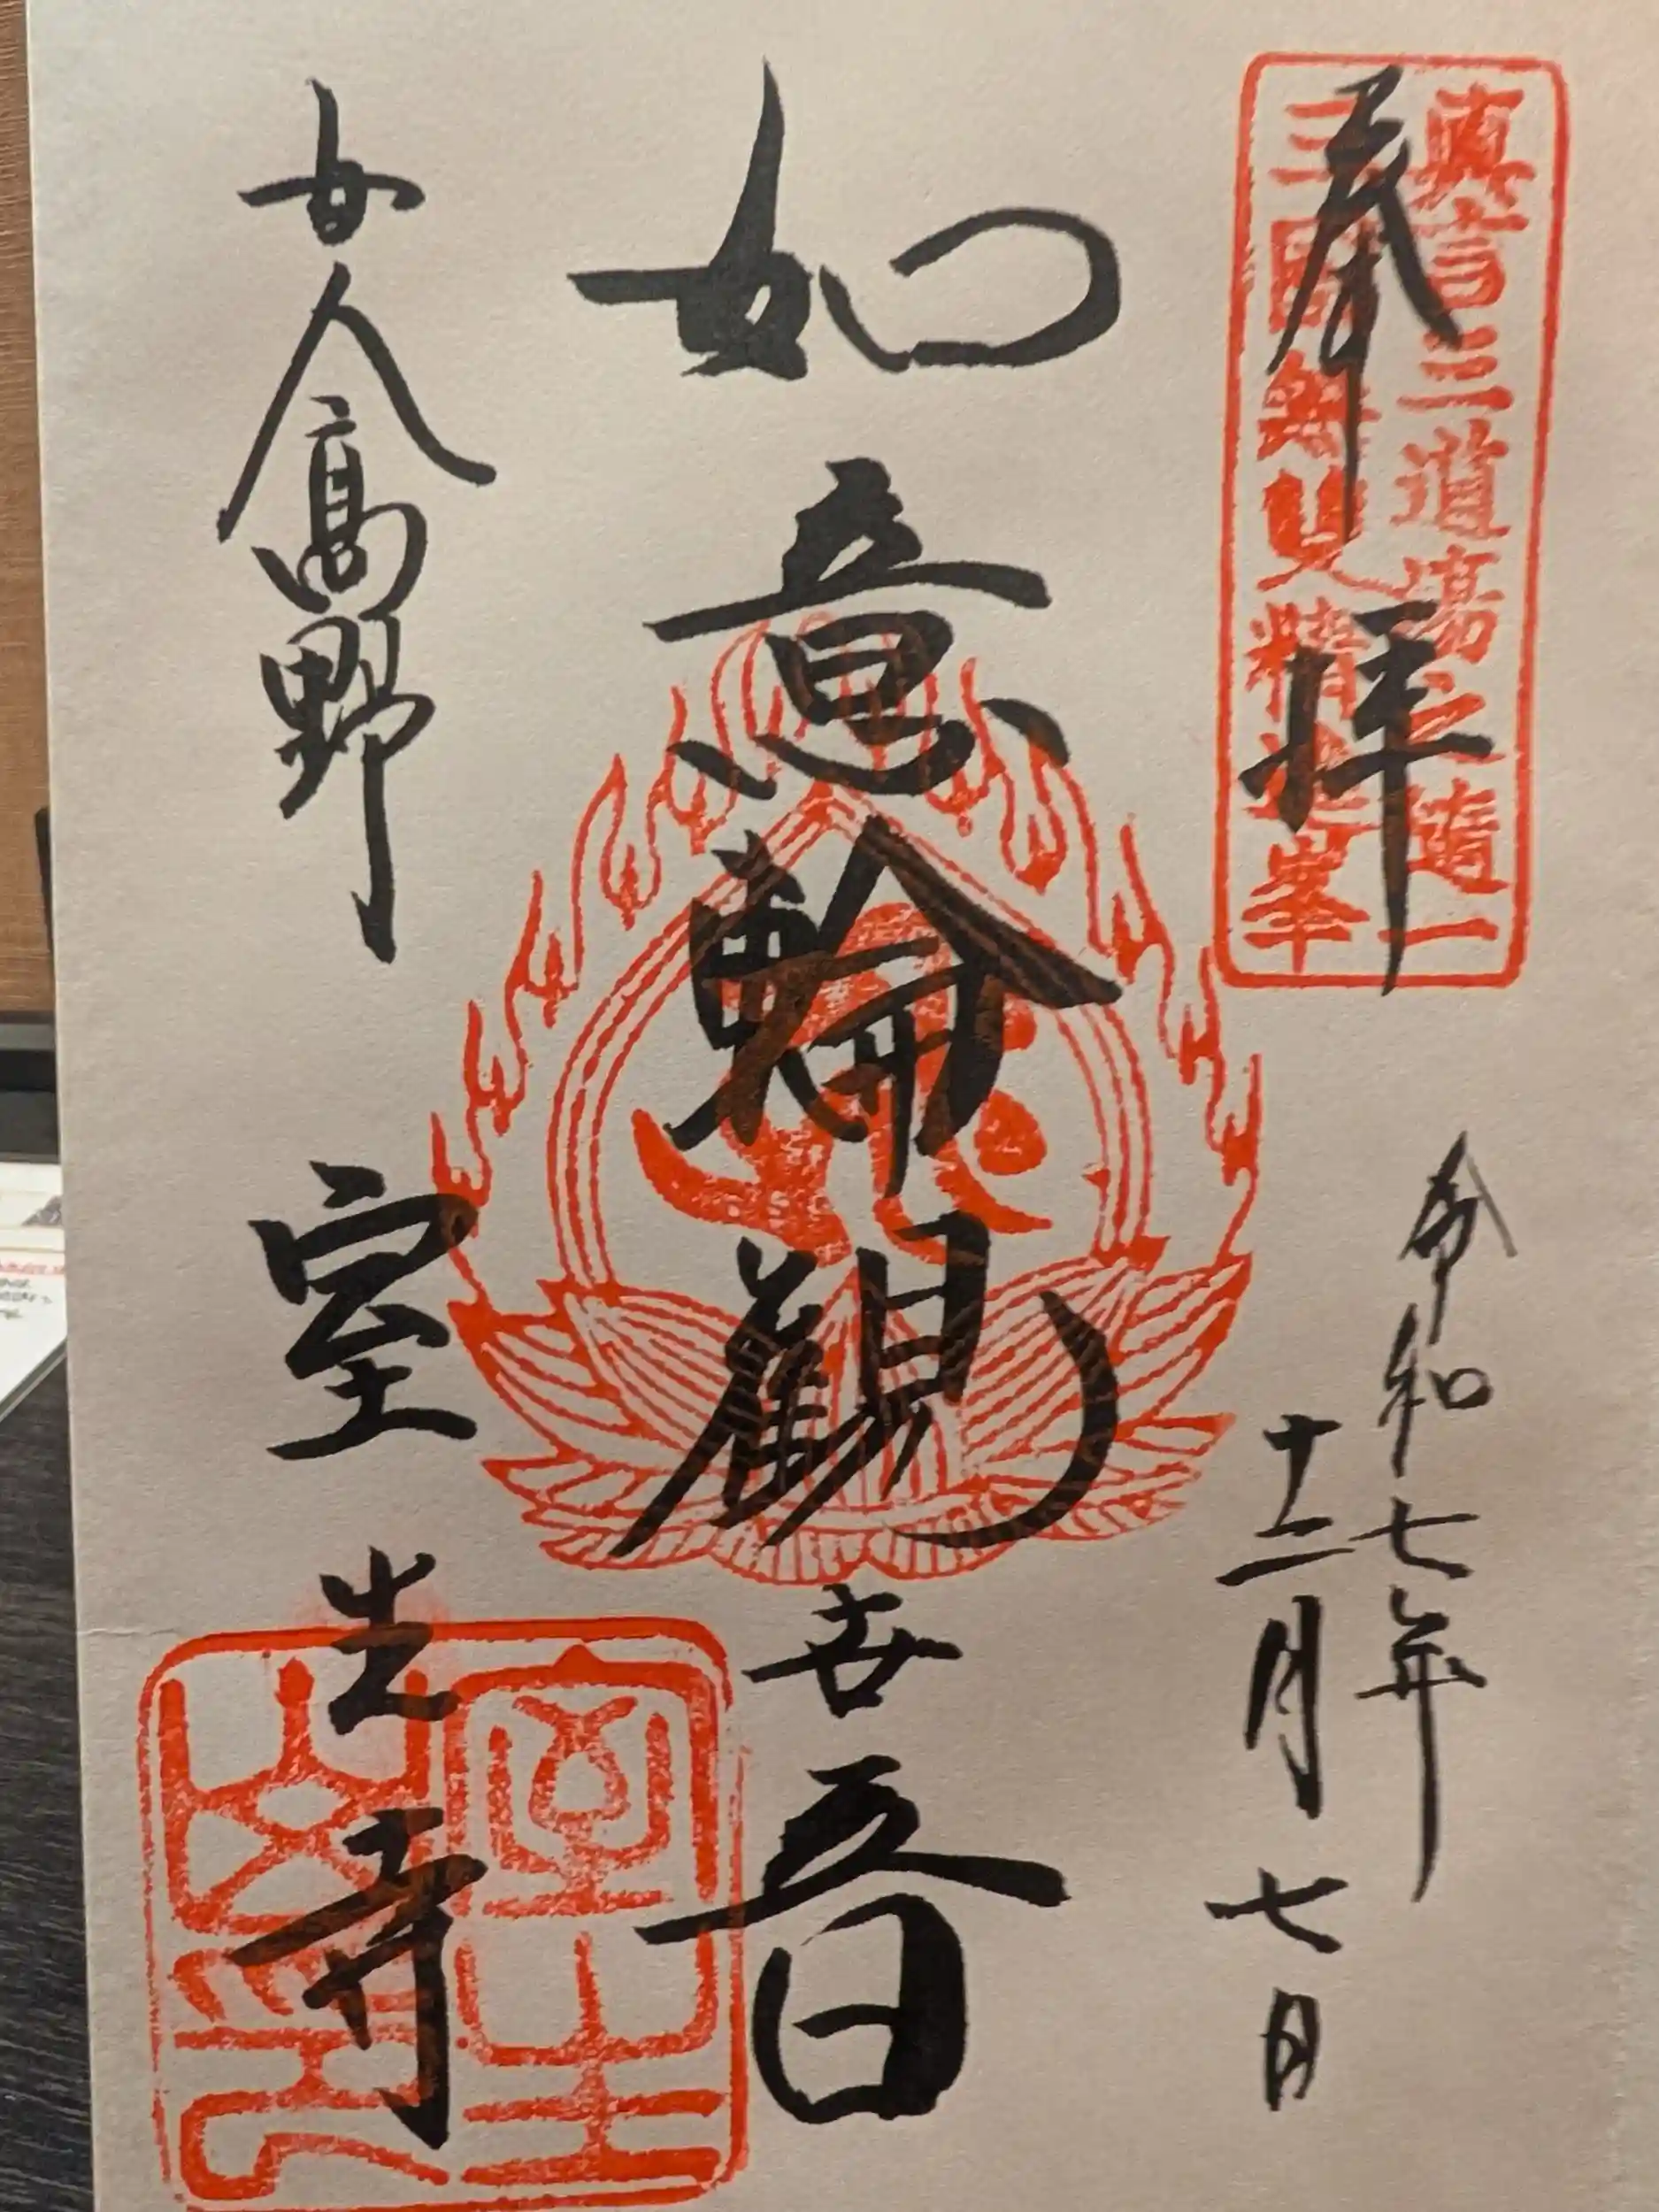 真言三道場之随一
三國無雙精進峯
奉拝
令和七年
十二月七日
如意輪觀世音
女人髙野
室生寺